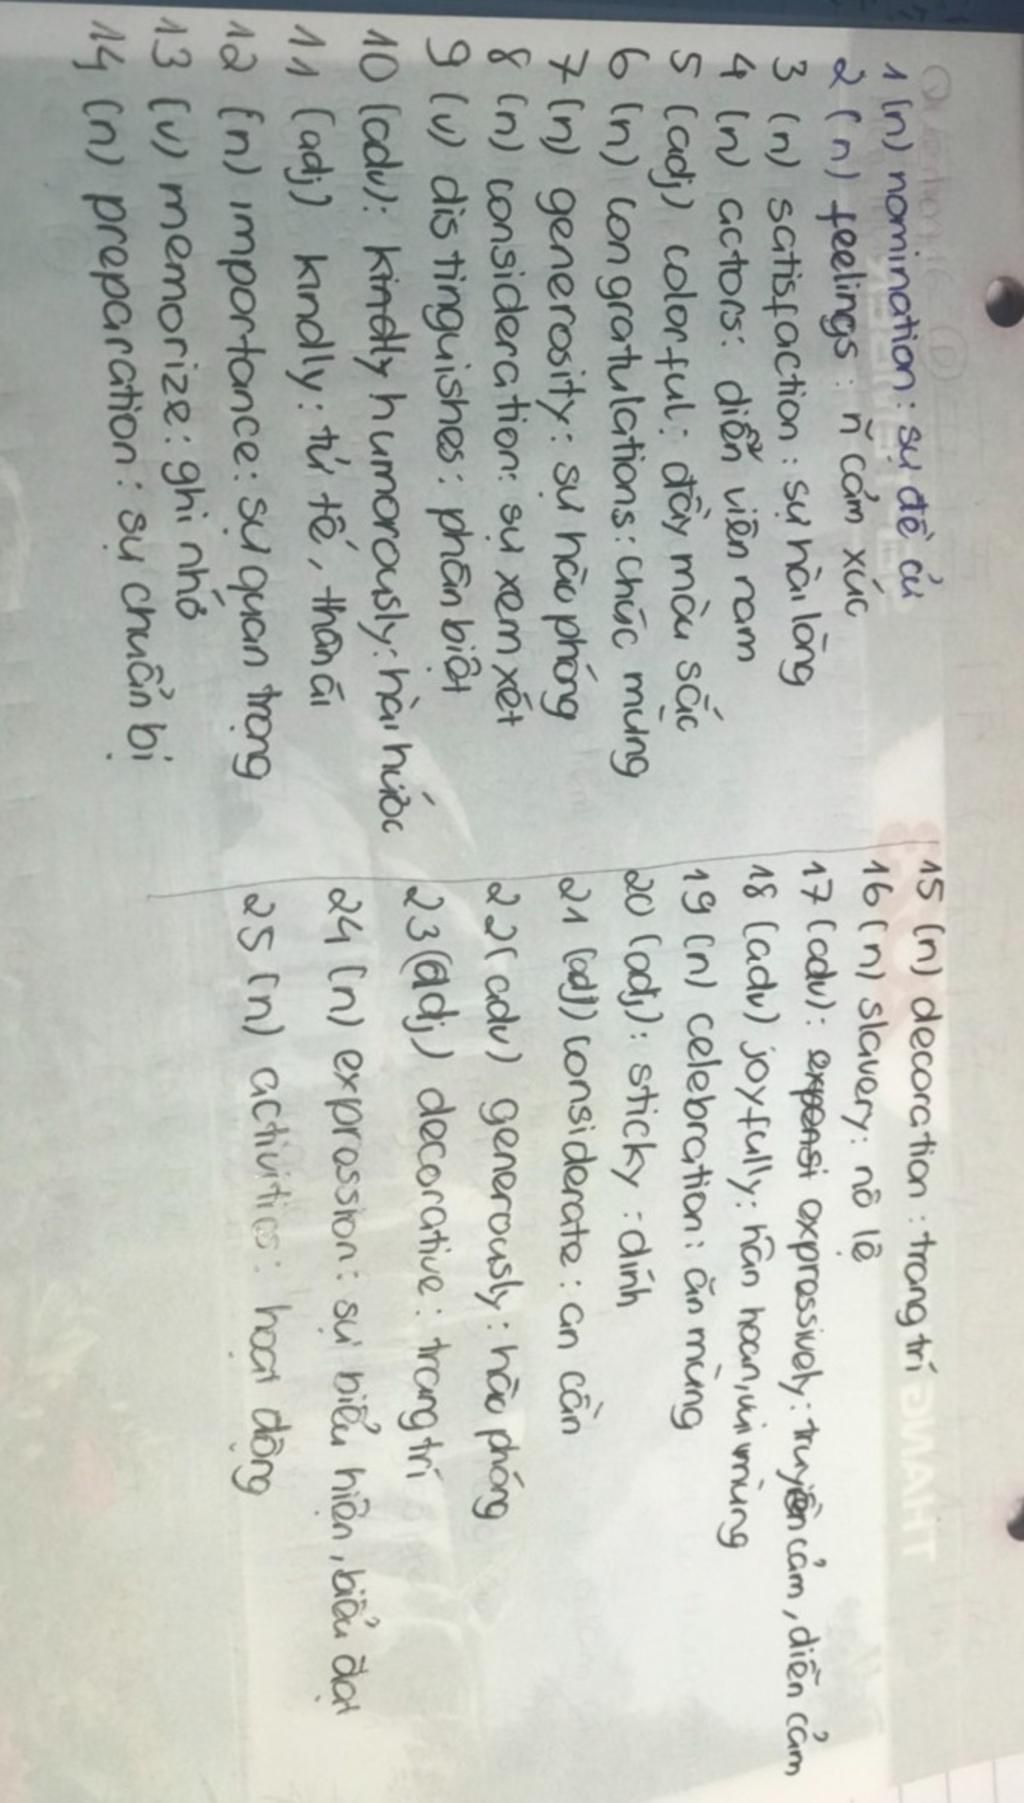 1 (n) nomination : sự đề cử
2 (n) feelings : ñ cảm xúc
3 (n) satisfaction : sự hài lòng
4 (n) actors : diễn viên nam
5 (adj) colorful : đầy màu sắc
6 (n) congratulations : chúc mừng
7 (n) generosity : sự hào phóng
8 (n) consideration : sự xem xét
9 (v) distinguishes : phân biệt
10 (adv) : kindly humorously : hài hước
11 (adj) kindly : tử tế, thân ái
12 (n) importance : sự quan trọng
13 (v) memorize : ghi nhớ
14 (n) preparation : sự chuẩn bị
15 (n) decoration : trang trí
16 (n) slavery : nô lệ
17 (adv) : expensi expressively : truyền cảm, diễn cảm
18 (adv) joyfully : hân hoan, vui mừng
19 (n) celebration : ăn mừng
20 (adj) : sticky : dính
21 (adj) considerate : ân cần
22 (adv) generously : hào phóng
23 (adj) decorative : trang trí
24 (n) expression : sự biểu hiện, biểu đạt
25 (n) activities : hoạt động